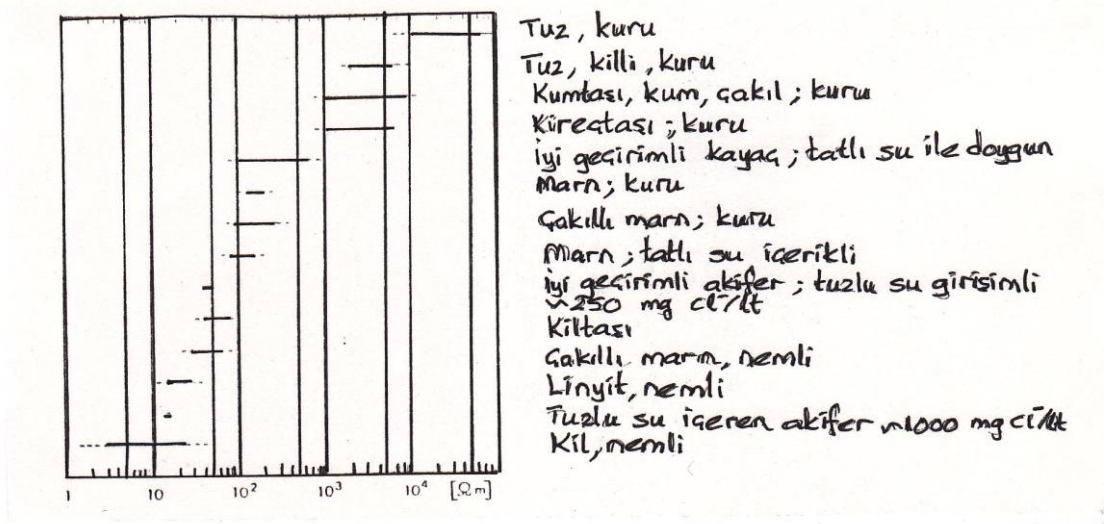 Tuz, kuru
Tuz, killi, kuru
Kumtaşı, kum, çakıl; kuru
Kireçtaşı; kuru
İyi geçirimli kayaç; tatlı su ile doygun
Marn; kuru
Çakıllı marn; kuru
Marn; tatlı su içerikli
İyi geçirimli akifer; tuzlu su girişimli
~250 mg cl⁻/lt
Kiltaşı
Çakıllı marn, nemli
Linyit, nemli
Tuzlu su içeren akifer ~1000 mg cl⁻/lt
Kil, nemli
1 10 10² 10³ 10⁴ [Ωm]